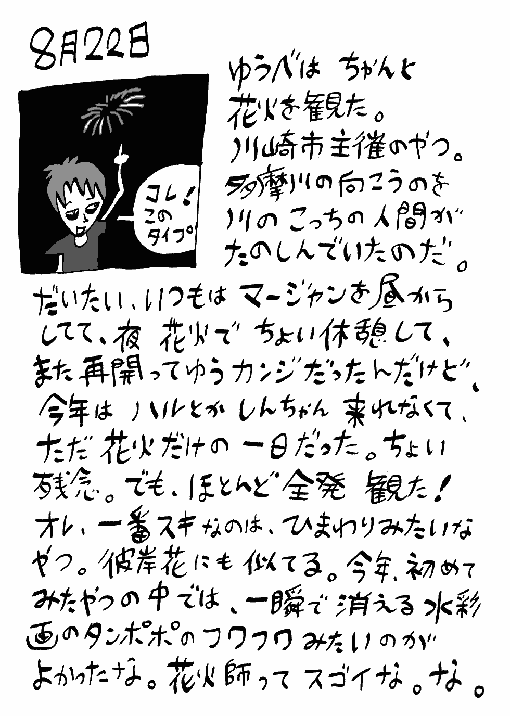 8月22日
コレ!
この
タイプ
ゆうべは ちゃんと
花火を観た。
川崎市主催のやつ。
多摩川の向こうのを
川の こっちの人間が
たのしんでいたのだ。
だいたい、いつもは マージャンを昼から
してて、夜 花火で ちょい休憩して、
また再開ってゆうカンジだったんだけど、
今年は ハルとか しんちゃん 来れなくて、
ただ 花火だけの 一日だった。ちょい
残念。でも、ほとんど 全発 観た!
オレ、一番スキなのは、ひまわりみたいな
やつ。彼岸花にも 似てる。今年、初めて
みたやつの中では、一瞬で 消える 水彩
画のタンポポのフワフワみたいのが
よかったな。花火師って スゴイな。な。